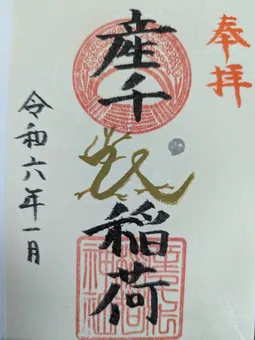 奉拝
産千代稲荷
令和六年一月
神社